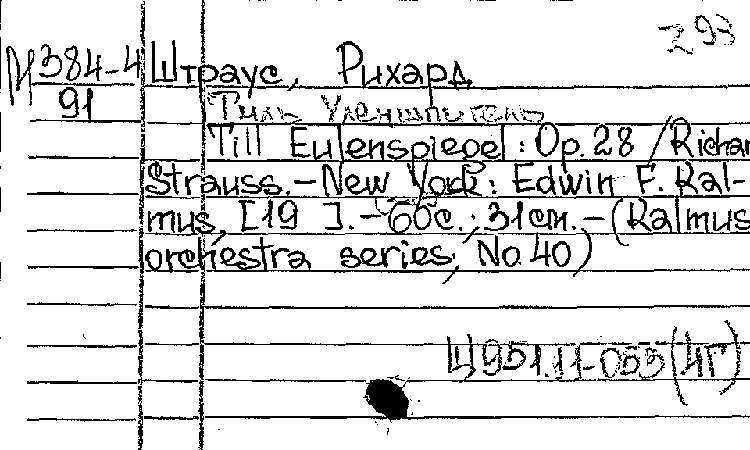 293
М 384-4
91
Штраус, Рихард
Тиль Уленшпигель
Till Eulenspiegel : Op. 28 / Richar
Strauss. – New York : Edwin F. Kal-
mus, [19 ]. – 60 с. ; 31 cm. – (Kalmus
orchestra series, No 40)
Щ951.11-053(4Г)